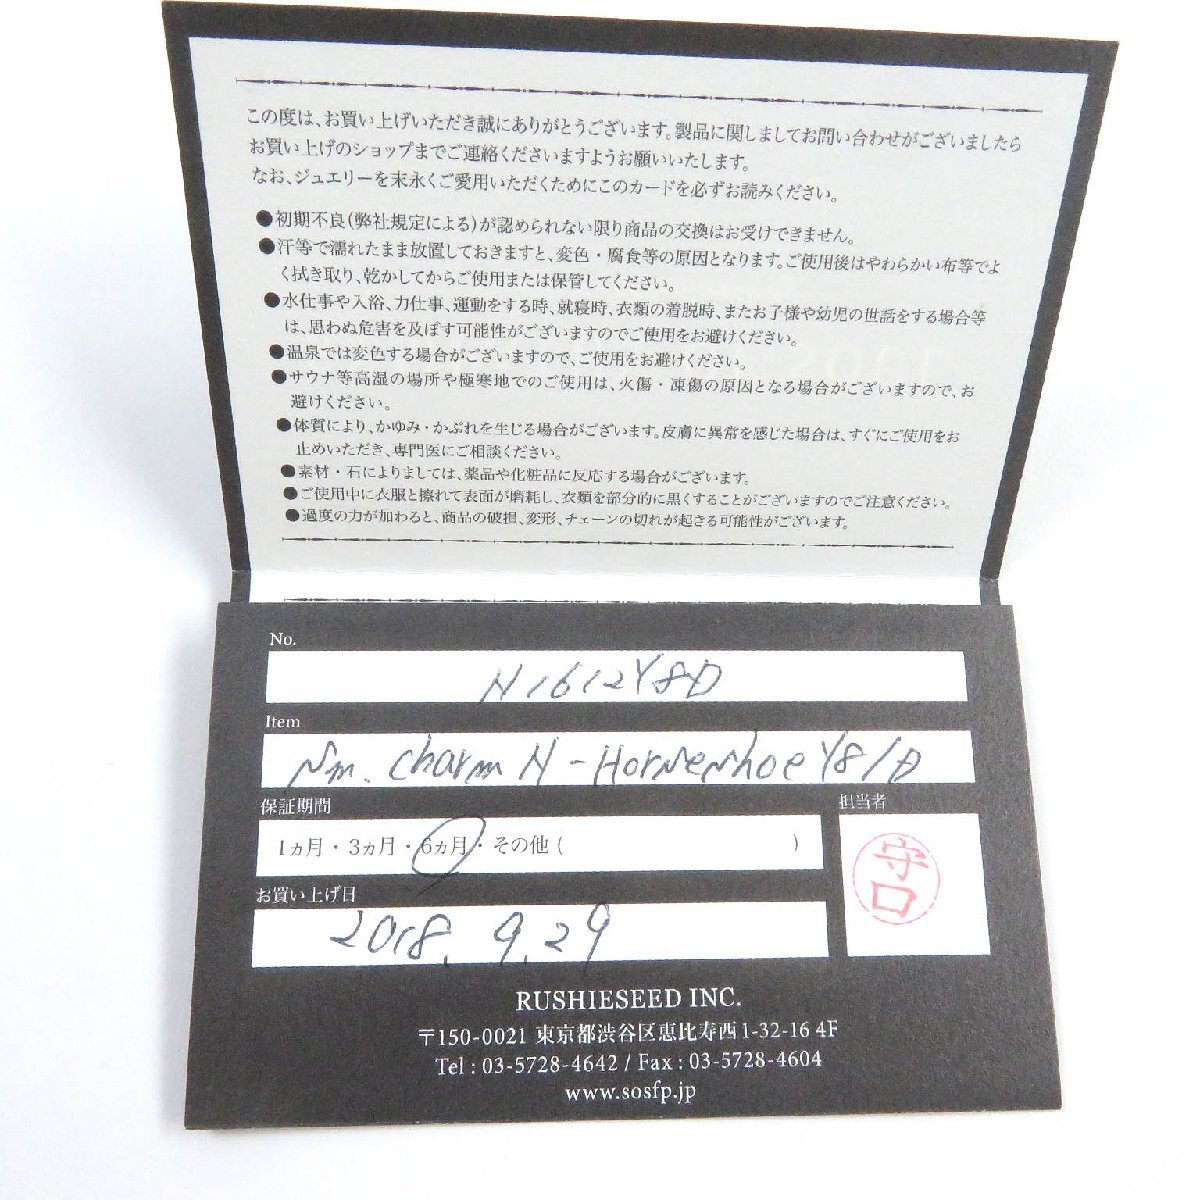 この度は、お買い上げいただき誠にありがとうございます。製品に関しましてお問い合わせがございましたら
お買い上げのショップまでご連絡くださいますようお願いいたします。
なお、ジュエリーを末永くご愛用いただくためにこのカードを必ずお読みください。
●初期不良(弊社規定による)が認められない限り商品の交換はお受けできません。
●汗等で濡れたまま放置しておきますと、変色・腐食等の原因となります。ご使用後はやわらかい布等でよ
く拭き取り、乾かしてからご使用または保管してください。
●水仕事や入浴、力仕事、運動をする時、就寝時、衣類の着脱時、またお子様や幼児の世話をする場合等
は、思わぬ危害を及ぼす可能性がございますのでご使用をお避けください。
●温泉では変色する場合がございますので、ご使用をお避けください。
●サウナ等高湿の場所や極寒地でのご使用は、火傷・凍傷の原因となる場合がございますので、お
避けください。
●体質により、かゆみ・かぶれを生じる場合がございます。皮膚に異常を感じた場合は、すぐにご使用をお
止めいただき、専門医にご相談ください。
●素材・石によりましては、薬品や化粧品に反応する場合がございます。
●ご使用中に衣服と擦れて表面が磨耗し、衣類を部分的に黒くすることがございますのでご注意ください。
●過度の力が加わると、商品の破損、変形、チェーンの切れが起きる可能性がございます。
No.
N1612Y8D
Item
Sm. charm N-HorseshoeY8/D
保証期間
担当者
1ヵ月・3ヵ月・6ヵ月・その他( )
守口
お買い上げ日
2018. 9. 29
RUSHIESEED INC.
〒150-0021 東京都渋谷区恵比寿西1-32-16 4F
Tel : 03-5728-4642 / Fax : 03-5728-4604
www.sosfp.jp